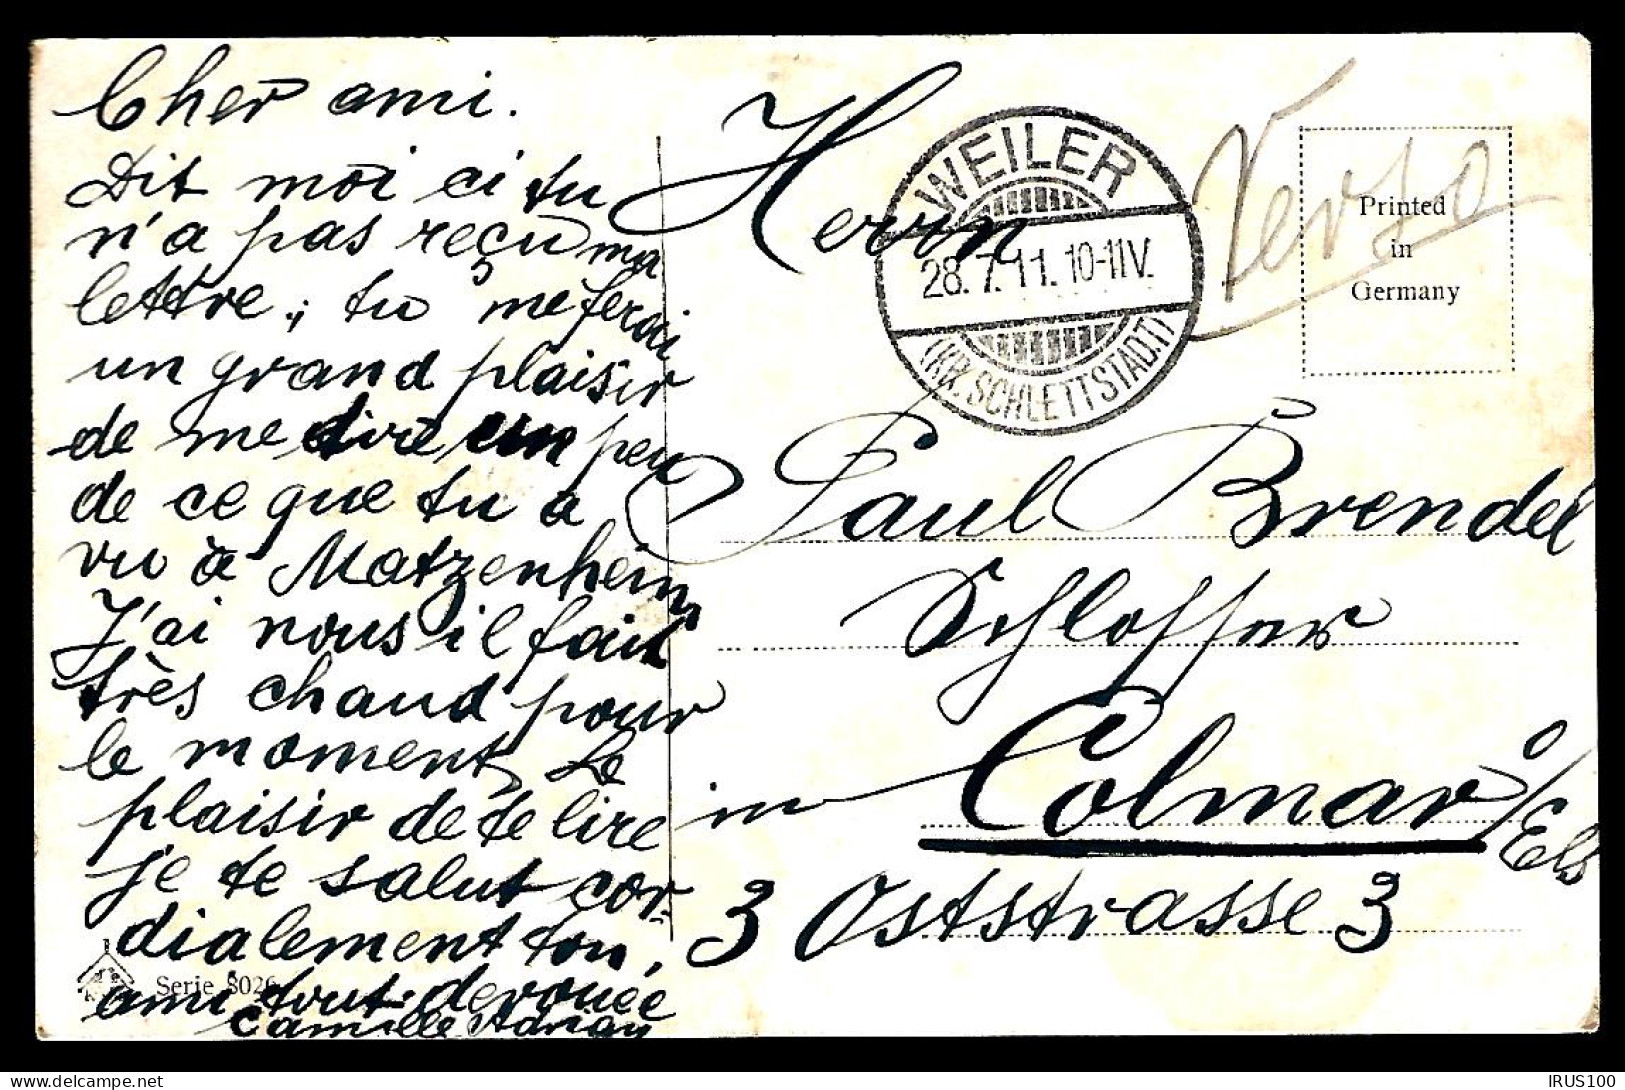 Cher ami.
Dit moi ci tu
n'a pas reçu ma
lettre, tu me ferai
un grand plaisir
de me dire un peu
de ce que tu a
vu à Matzenheim
J'ai nous il fait
très chaud pour
le moment. Le
plaisir de te lire
je te salut cor-
dialement ton
ami tout devouée
Camille Adrian
Serie 8026
Herrn
WEILER
28.7.11. 10-11V.
(KR. SCHLETTSTADT)
Verso
Printed
in
Germany
Paul Brendel
Schlosser
in Colmar o/Els
3 Oststrasse 3
IRUS100